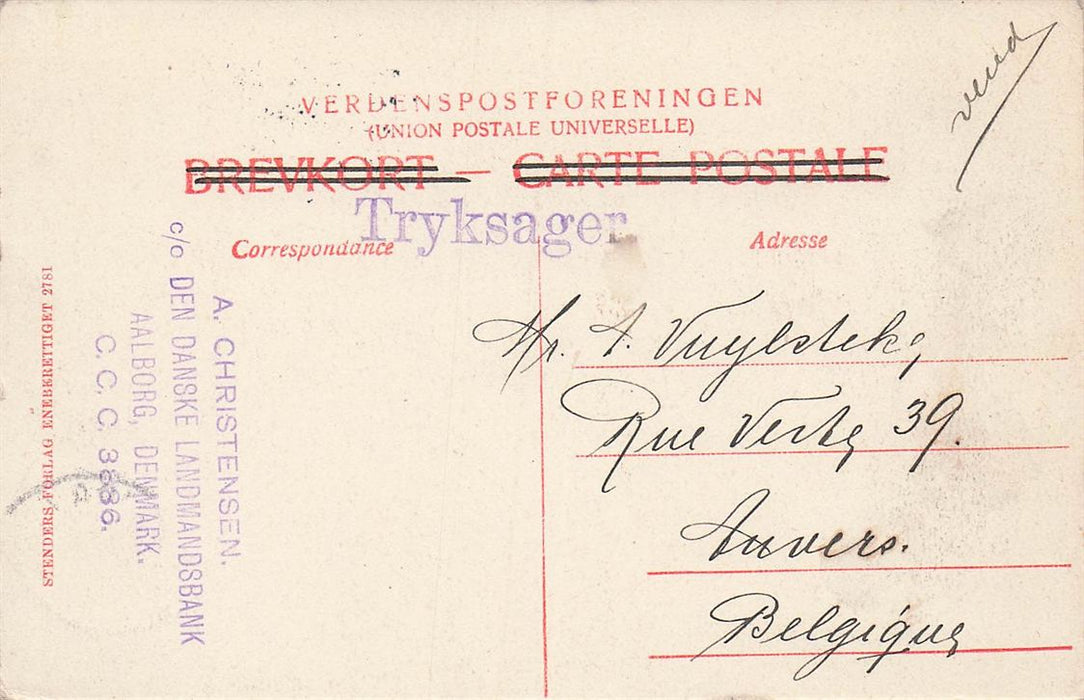 vend
VERDENSPOSTFORENINGEN
(UNION POSTALE UNIVERSELLE)
BREVKORT — CARTE POSTALE
Tryksager
Correspondance
Adresse
A. CHRISTENSEN.
c/o DEN DANSKE LANDMANDSBANK
AALBORG, DENMARK.
C. C. C. 3886.
STENDERS FORLAG ENEBERETTIGET 2781
Mr. A. Vuylsteke,
Rue Verte 39.
Anvers.
Belgique